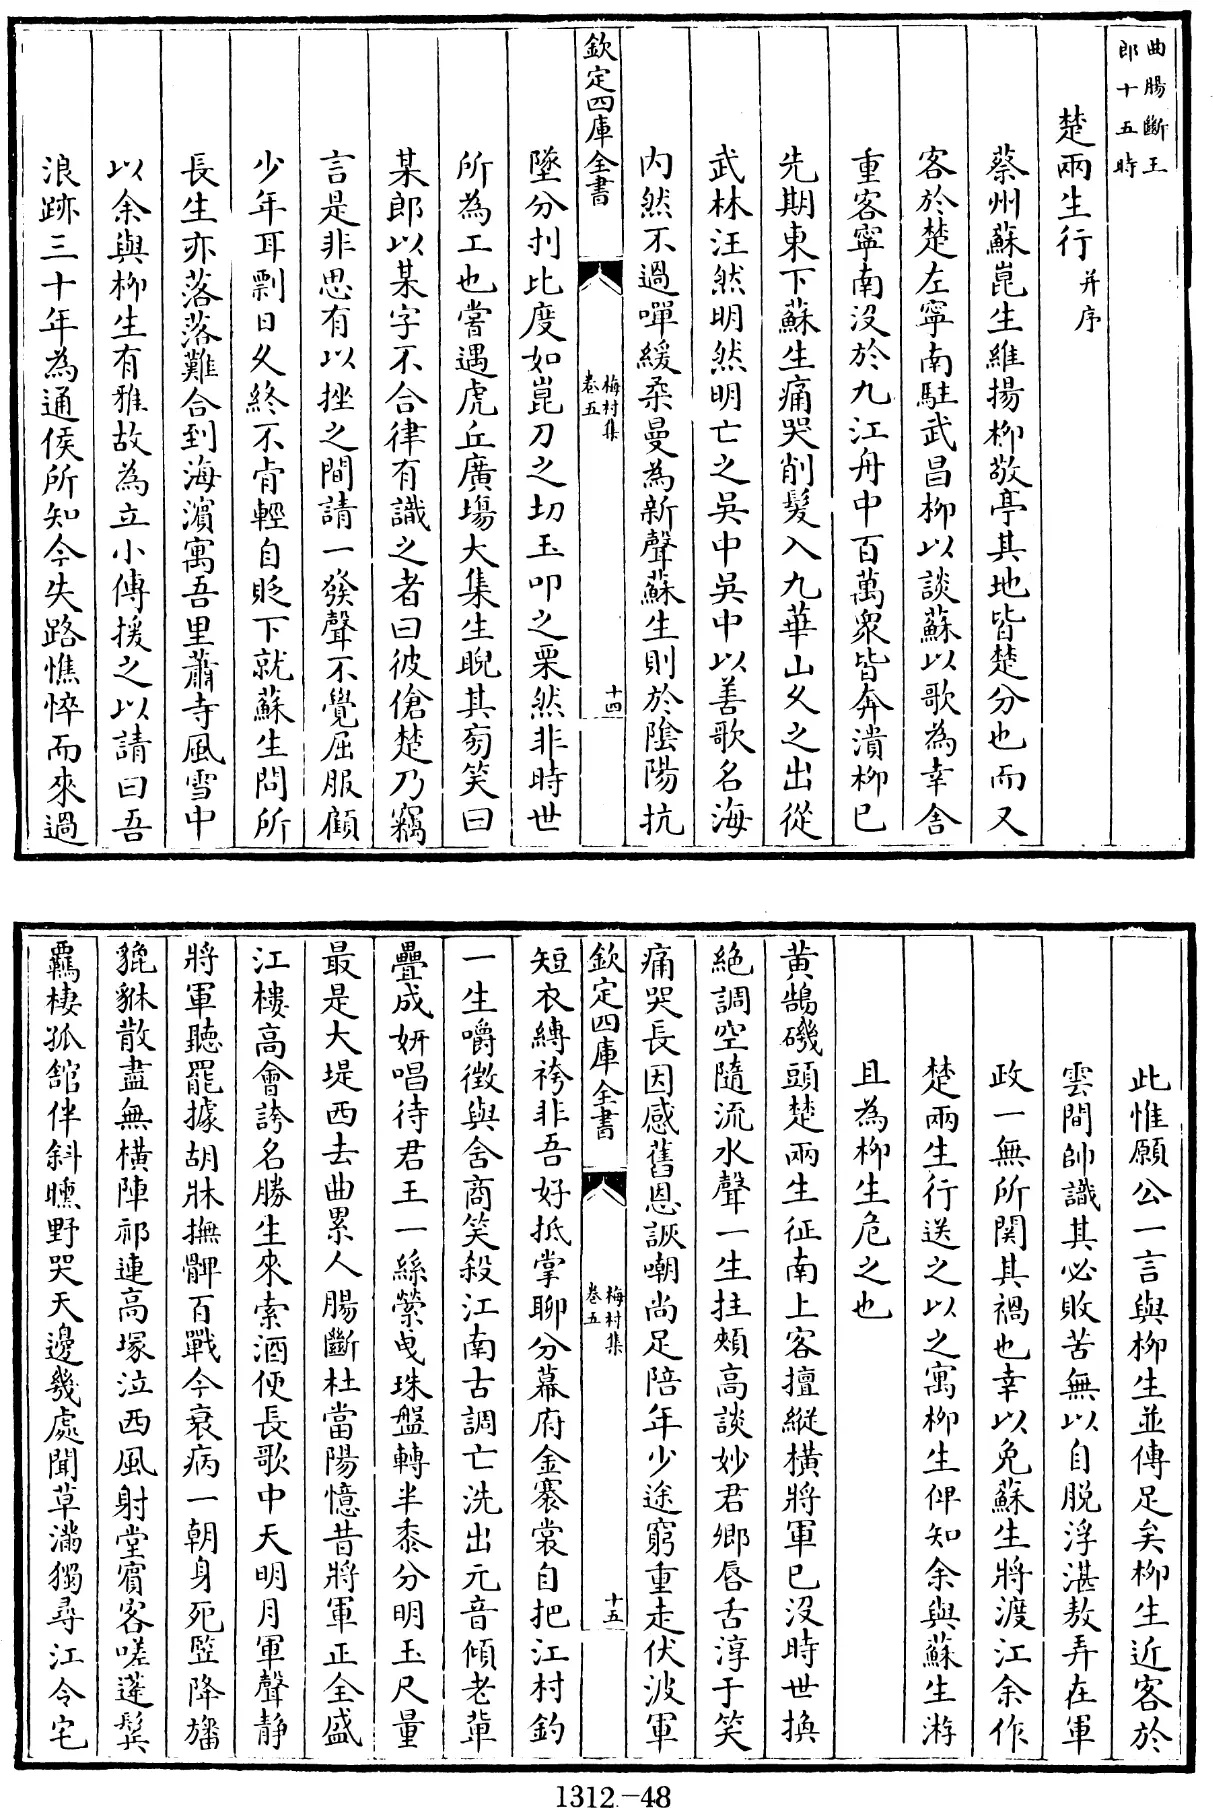 曲腸斷王
郎十五時
楚兩生行 并序
蔡州蘇崑生維揚柳敬亭其地皆楚分也而又
客於楚左寧南駐武昌柳以談蘇以歌為幸舍
重客寧南沒於九江舟中百萬衆皆奔潰柳已
先期東下蘇生痛哭削髮入九華山久之出從
武林汪然明然明亡之吳中吳中以善歌名海
内然不過嘽緩柔曼為新聲蘇生則於陰陽抗
欽定四庫全書
梅村集
卷五
十四
墜分刌比度如崑刀之切玉叩之栗然非時世
所為工也嘗遇虎丘廣場大集生睨其旁笑曰
某郎以某字不合律有識之者曰彼傖楚乃竊
言是非思有以挫之間請一發聲不覺屈服顧
少年耳剽日久終不肯輕自貶下就蘇生問所
長生亦落落難合到海濵寓吾里蕭寺風雪中
以余與柳生有雅故為立小傳援之以請曰吾
浪跡三十年為通侯所知今失路憔悴而來過
此惟願公一言與柳生並傳足矣柳生近客於
雲間帥識其必敗苦無以自脱浮湛敖弄在軍
政一無所関其禍也幸以免蘇生將渡江余作
楚兩生行送之以之寓柳生俾知余與蘇生游
且為柳生危之也
黄鵠磯頭楚兩生征南上客擅縱横將軍已沒時世換
絶調空隨流水聲一生拄頰高談妙君卿唇舌淳于笑
痛哭長因感舊恩詼嘲尚足陪年少途窮重走伏波軍
欽定四庫全書
梅村集
卷五
十五
短衣縛袴非吾好抵掌聊分幕府金褰裳自把江村釣
一生嚼徴與含商笑殺江南古調亡洗出元音傾老輩
疊成妍唱待君王一絲縈曳珠盤轉半黍分明玉尺量
最是大堤西去曲累人腸斷杜當陽憶昔將軍正全盛
江樓高會誇名勝生來索酒便長歌中天明月軍聲静
將軍聽罷據胡牀撫髀百戰今衰病一朝身死竪降旛
貔貅散盡無横陣祁連高塚泣西風射堂賔客嗟蓬鬢
羈棲孤館伴斜曛野哭天邊幾處聞草滿獨尋江令宅
1312-48